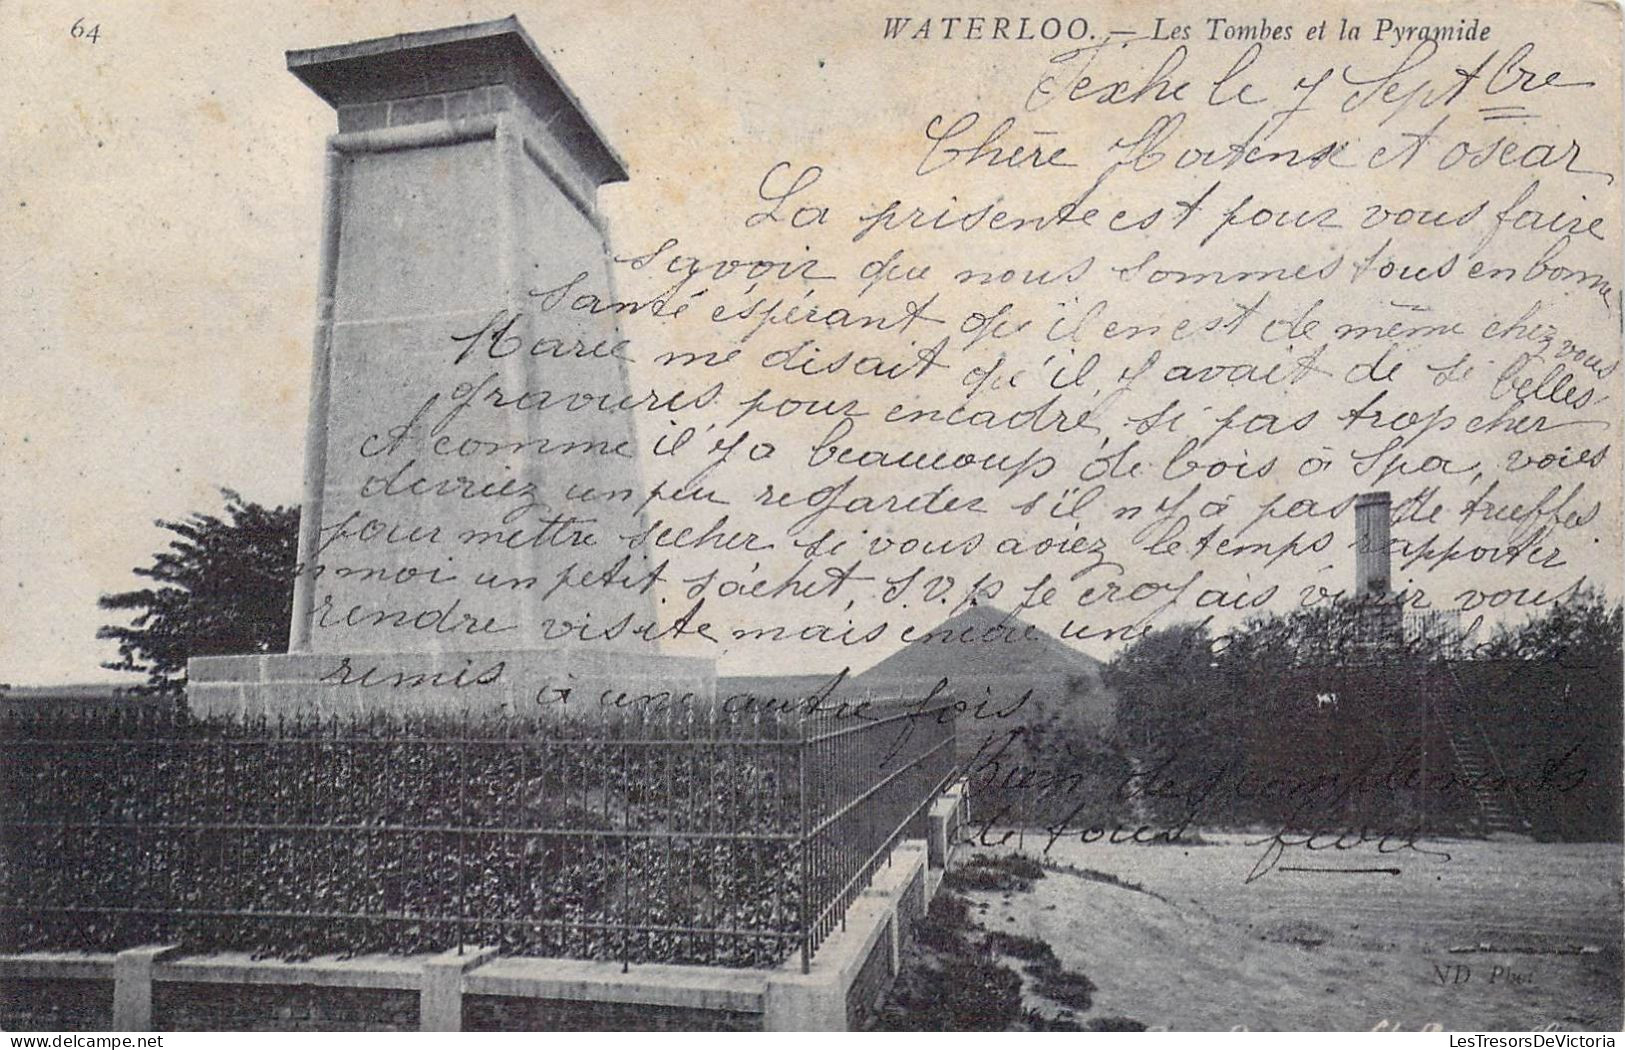 64
WATERLOO. — Les Tombes et la Pyramide
Fexhe le 7 Septbre
Chère Hortense et oscar
La prisente est pour vous faire
savoir que nous sommes tous en bonne
santé éspérant qu'il en est de même chez vous
Marie me disait qu'il y avait de si belles
gravures pour encadré, si pas trop cher
et comme il y a beaucoup de bois à Spa, voies
devriez un peu regarder s'il n'y à pas de truffes
pour mettre secher si vous aviez le temps rapporter
moi un petit sachet, S.V.P je croyais venir vous
rendre visite mais encore une
remis à une autre fois
Bien des compliments
de tous
ND Phot
LesTresorsDeVictoria